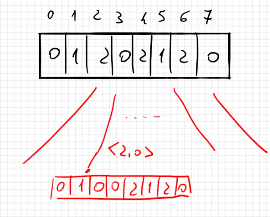 0 1 2 3 4 5 6 7
0 1 2 0 2 1 2 0
....
<2,0>
0 1 0 0 2 1 2 0